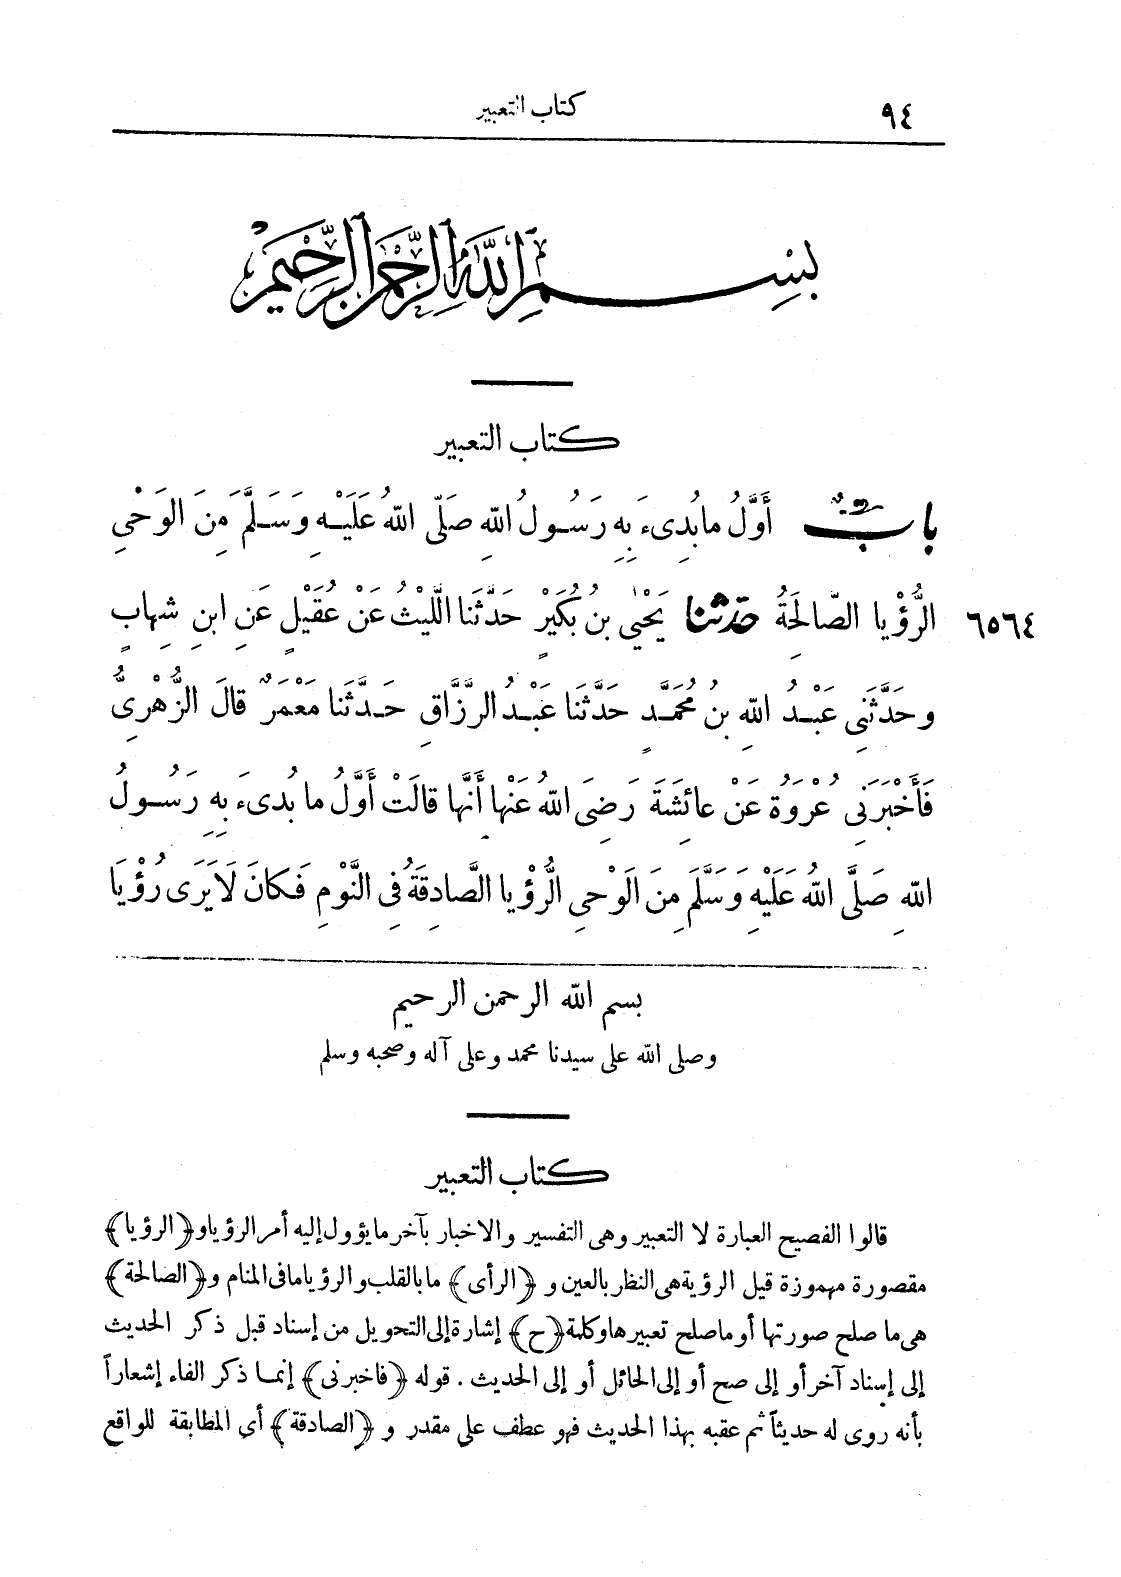 ٩٤ كتاب التعبير
بِسْمِ اللهِ الرَّحْمنِ الرَّحِيمِ
كتاب التعبير
بابٌ أَوَّلُ ما بُدِىءَ بِهِ رَسُولُ اللهِ صَلَّى اللهُ عَلَيْهِ وَسَلَّمَ مِنَ الوَحْىِ
٦٥٦٤ الرُّؤْيا الصَّالِحَةُ حَدَّثنا يَحْيٰى بنُ بُكَيْرٍ حَدَّثَنا اللَّيْثُ عَنْ عُقَيْلٍ عَنِ ابنِ شِهابٍ
وحَدَّثَنِى عَبْدُ اللهِ بنُ مُحَمَّدٍ حَدَّثَنا عَبْدُ الرَّزَّاقِ حَدَّثَنا مَعْمَرٌ قالَ الزُّهْرِىُّ
فَأَخْبَرَنِى عُرْوَةُ عَنْ عائِشَةَ رَضِىَ اللهُ عَنْها أَنَّها قالَتْ أَوَّلُ ما بُدِىءَ بِهِ رَسُولُ
اللهِ صَلَّى اللهُ عَلَيْهِ وَسَلَّمَ مِنَ الوَحْىِ الرُّؤْيا الصَّادِقَةُ فِى النَّوْمِ فَكانَ لَا يَرَى رُؤْيَا
بسم الله الرحمن الرحيم
وصلى الله على سيدنا محمد وعلى آله وصحبه وسلم
كتاب التعبير
قالوا الفصيح العبارة لا التعبير وهى التفسير والاخبار بآخر ما يؤول إليه أمر الرؤيا و﴿الرؤيا﴾
مقصورة مهموزة قيل الرؤية هى النظر بالعين و ﴿الرأى﴾ ما بالقلب والرؤيا ما فى المنام و﴿الصالحة﴾
هى ما صلح صورتها أو ما صلح تعبيرها وكلمة ﴿ح﴾ إشارة إلى التحويل من إسناد قبل ذكر الحديث
إلى إسناد آخر أو إلى صح أو إلى الحائل أو إلى الحديث . قوله ﴿فاخبرنى﴾ إنما ذكر الفاء إشعاراً
بأنه روى له حديثاً ثم عقبه بهذا الحديث فهو عطف على مقدر و ﴿الصادقة﴾ أى المطابقة للواقع